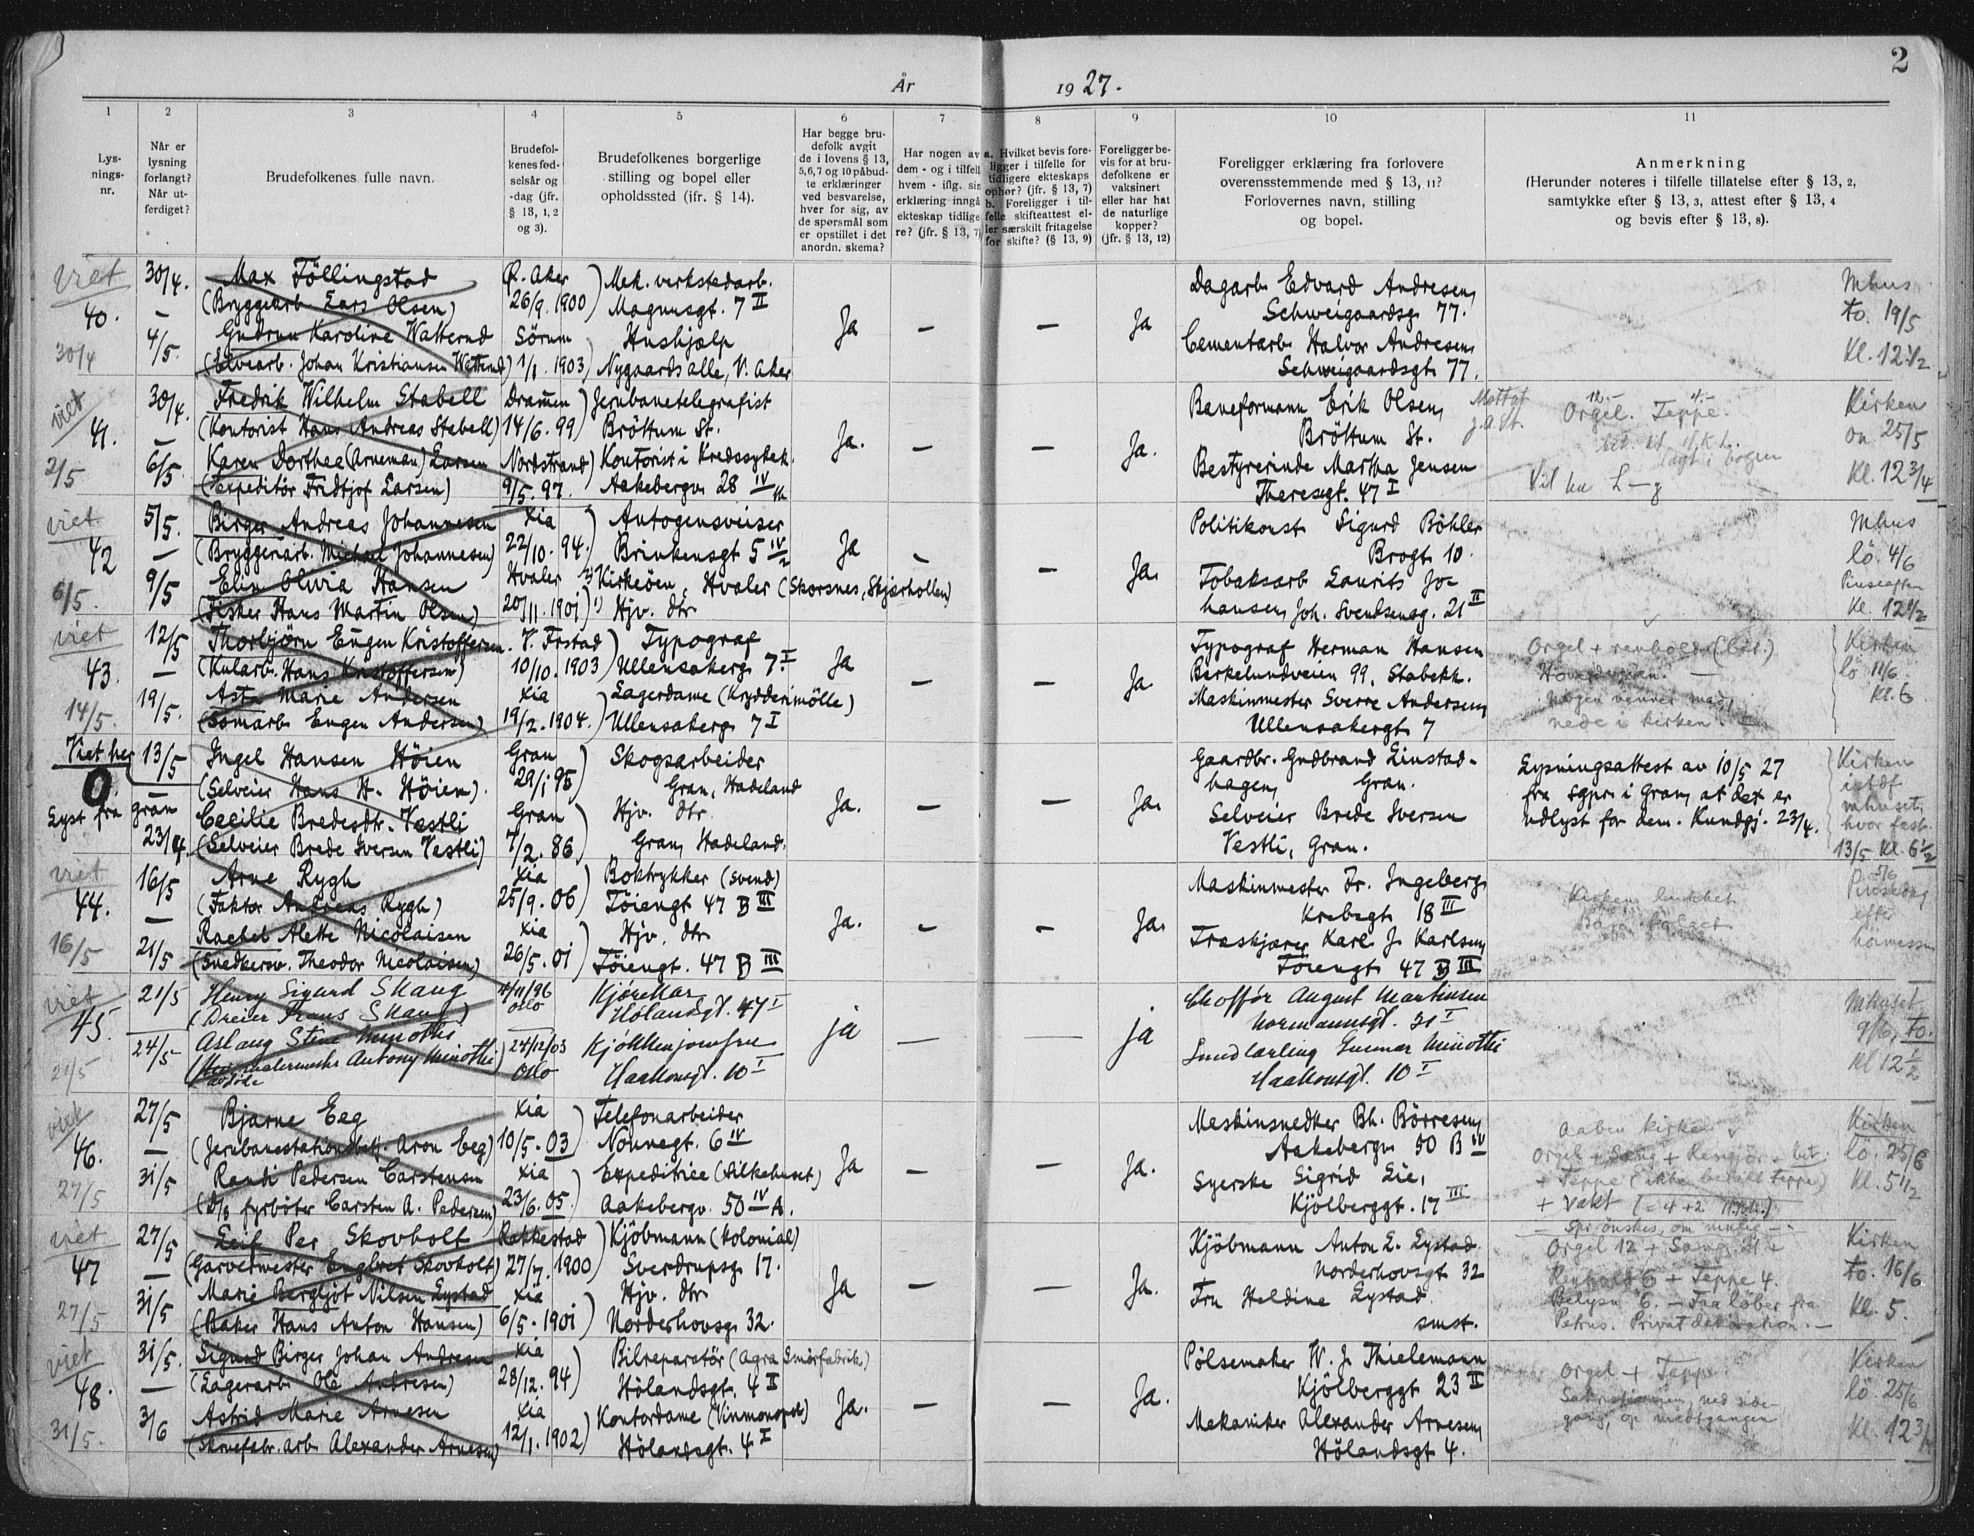 2
År 1927.
1 2 3 4 5 6 7 8 9 10 11
Lys-
nings-
nr.
Når er
lysning
forlangt?
Når ut-
ferdiget?
Brudefolkenes fulle navn.
Brudefol-
kenes fød-
selsår og
-dag (jfr.
§ 13, 1, 2
og 3).
Brudefolkenes borgerlige
stilling og bopel eller
opholdssted (ifr. § 14).
Har begge bru-
defolk avgit
de i lovens § 13,
5,6,7 og 10 påbud-
te erklæringer
ved besvarelse,
hver for sig, av
de spørsmål som
er opstillet i det
anordn. skema?
Har nogen av
dem - og i tilfell
hvem - iflg. sin
erklæring inngå
ekteskap tidlige
re? (jfr. § 13, 7)
a. Hvilket bevis fore-
ligger i tilfelle for
tidligere ekteskaps
ophør? (jfr. § 13, 7)
b. Foreligger i til-
felle skifteattest el-
ler særskilt fritagelse
for skifte? (§ 13, 9)
Foreligger be-
vis for at bru-
defolkene er
vaksinert
eller har hat
de naturlige
kopper?
(jfr. § 13, 12)
Foreligger erklæring fra forlovere
overensstemmende med § 13, 11?
Forlovernes navn, stilling
og bopel.
Anmerkning
(Herunder noteres i tilfelle tillatelse efter § 13, 2,
samtykke efter § 13, 3, attest efter § 13, 4
og bevis efter § 13, 8).
viet
40.
30/4
30/4.
—
4/5.
Max Föllingstad
(Bryggearb. Lars Olsen)
Gudrun Karoline Watterud
(Elvearb. Johan Kristiansen Watterud)
Ø. Aker
26/9. 1900)
Sörum
1/1. 1903)
Mek. verkstedarb.
Magnusgt. 7 II
Hushjælp
Nygaards alle, V. Aker
Ja — — Ja
Dagarb. Edvard Andresen,
Schweigaardsg. 77.
Cementarb. Halvor Andresen,
Schweigaardsgt. 77.
Mhus
to. 19/5
Kl. 12 1/2
viet
41.
2/5
30/4.
—
6/5.
Fredrik Wilhelm Stabell
(Kontorist Hans Andreas Stabell)
Karen Dorthea (Arneman) Larsen
(Expeditör Fridtjof Larsen)
Drammen
14/6. 99)
Nordstrand
9/5. 97.
Jernbanetelegrafist
Bröttum St.
Kontorist i Kredssykek.
Aakebergv. 28 IV
Ja. — — Ja.
Baneformann Erik Olsen,
Bröttum St.
Bestyrerinde Martha Jensen
Theresgt. 47 I
12.- 4.-
Orgel. Teppe.
Vil ha L—g
Kirken
on. 25/5
Kl. 12 3/4
viet
42
6/5.
5/5.
—
9/5
Birger Andreas Johannesen
(Bryggeriarb. Michael Johannesen)
Elin Olivia Hansen
(Fisker Hans Martin Olsen)
Xia
22/10. 94.
Hvaler
20/11. 1901)
Autogensveiser
Brinkensgt 5 IV
Kirkeöen, Hvaler (Skorsnes, Skjærhollen)
Hjv. dtr
Ja — — Ja.
Politikonst. Sigurd Böhler
Brogt 10.
Tobaksarb. Laurits Jo-
hansen, Joh. Svendsensg. 21 II
Mhus
lö. 4/6
Pinseaften
Kl. 12 1/2
viet
43.
14/5.
12/5
—
19/5.
Thorbjörn Eugen Kristoffersen.
(Kularb. Hans Kristoffersen)
Asta Marie Andersen
(Sömarb. Eugen Andersen)
10/10. 1903
Xia
19/2. 1904.
Typograf
Ullensakerg. 7 I
Lagerdame (Krydderimölle)
Ullensakerg. 7 I
Ja — — Ja
Typograf Herman Hansen
Birkelundveien 99, Stabekk.
Maskinmester Sverre Andersen,
Ullensakergt 7
Orgel + renhold (bet.)
nogen venner med
nede i kirken. —
Kirken
lö 11/6.
Kl. 6
Viet her
0.
Lyst fra Gran
13/5
23/4.
Ingel Hansen Höien
(Selveier Hans H. Höien).
Cecilie Bredesdtr. Vestli
(Selveier Brede Iversen Vestli)
Gran
29/1 95
Gran
7/2. 86
Skogsarbeider
Gran, Hadeland
Hjv. dtr.
Gran, Hadeland.
Ja. — — Ja.
Gaardbr. Gudbrand Linstad-
hagen, Gran.
Selveier Brede Iversen
Vestli, Gran.
Lysningsattest av 10/5 27
fra sgpr. i Gran, at det er
udlyst for dem. Kundgj. 23/4.
Kirken
istdf.
mhuset,
hvor fast.
13/5 Kl. 6 1/2
viet
44.
16/5
16/5
—
21/5
Arne Rygh
(Faktor Andreas Rygh)
Rachel Alette Nicolaisen
(Snedkersv. Theodor Nicolaisen)
Xia
25/9. 06
Xia
26/5. 01
Boktrykker (svend)
Töiengt 47 B III
Hjv. dtr
Töiengt. 47 B III
Ja. — — Ja.
Maskinmester Fr. Ingeberg,
Krebsgt. 18 III
Træskjærer Karl J. Karlsen,
Töiengt 47 B III
Kirken lukket
5/6
Pinsedag
efter
höimessen
viet
45.
21/5
21/5
24/5
Henry Sigurd Skaug
(Dreier Frans Skaug)
Aslaug Stine Minothi
Antony Minothi)
4/11/96
Oslo
24/12/03
Oslo
Kjørekar
Hölandsgt. 47 I
Kjøkkenjomfru
Haakonsgt. 10 I
ja — — ja
Chofför August Martinsen
Normannsgt. 31 I
Gunnar Minothi
Haakonsgt. 10 I
Mhuset
9/6, to.
Kl 12 1/2
viet
46.
27/5
27/5
—
31/5
Bjarne Eeg
(Jernbanestationsbetj. Aron Eeg)
Randi Pedersen Carstensen
(D/s fyrböter Carsten A. Pedersen)
Xia
10/5. 03
Xia
23/6. 05.
Telefonarbeider
Nonnegt. 6 IV
Expeditrice (Silkehuset)
Aakebergv. 50 IV A.
Ja — — Ja.
Maskinsnedker Bh. Börresen,
Aakebergv. 50 B IV
Syerske Sigrid Lie,
Kjölberggt. 17 III
Aaben kirke
Orgel + Sang + Rengjör. bet.
+ Teppe (ikke betalt teppe)
+ Vakt
Kirken
lo. 25/6
Kl. 5 1/2
viet
47
27/5
27/5
—
31/5
Leif Per Skovholt
(Garvermester Engbret Skovholt)
Marie Bergljot Nilsen Lystad
(Baker Hans Anton Hansen)
Rakkestad
27/7. 1900
Xia
6/5. 1901
Kjöbmann (kolonial)
Sverdrupsg. 17.
Hjv. dtr
Norderhovsg. 32.
Ja — — Ja.
Kjöbmann Anton L. Lystad
Norderhovsgt 32
Fru Heldine Lystad
smst.
Orgel 12 + Sang 21 +
Renhold 6 + Teppe 4.
Belysn 6. — Faa löber fra
Petrus. Privat dekoration. —
Kirken
to. 16/6
Kl. 5.
viet
48.
31/5.
31/5.
—
3/6
Sigurd Birger Johan Andresen
(Lagerarb. Ole Andresen)
Astrid Marie Arnesen
(Skruefabr. arb. Alexander Arnesen)
Xia
28/12. 94)
Xia
12/1. 1902)
Bilreparatör (Agra Smörfabrik)
Hölandsgt. 4 II
Kontordame (Vinmonopol)
Hölandsgt. 4 I
Ja. — — Ja.
Pölsemaker W. J. Thielemann
Kjölberggt 23 II
Mekaniker Alexander Arnesen,
Hölandsgt 4.
Orgel + Teppe.
Kirken
lö 25/6
Kl. 12 3/4